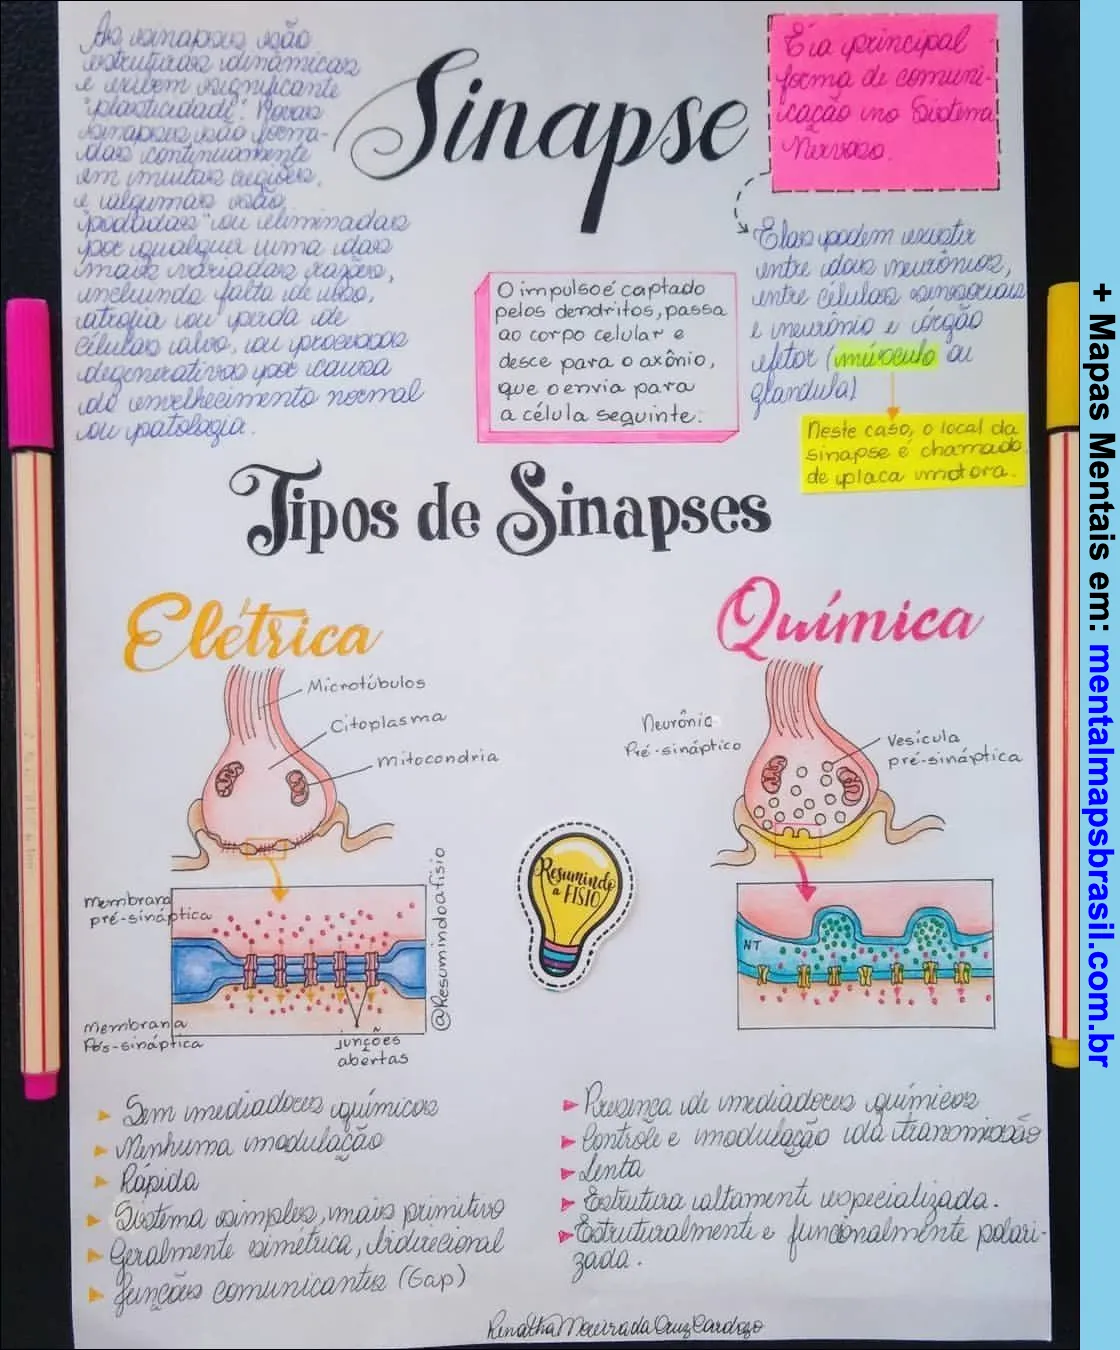 As sinapses são
estruturas dinâmicas
e exibem significante
"plasticidade". Novas
sinapses são forma-
das continuamente
em muitas regiões,
e algumas são
"podadas" ou eliminadas
por qualquer uma das
mais variadas razões,
incluindo falta de uso,
atrofia ou perda de
células alvo, ou processos
degenerativos por causa
do envelhecimento normal
ou patologia.
Sinapse
É a principal
forma de comuni-
cação no Sistema
Nervoso.
Elas podem existir
entre dois neurônios,
entre células sensoriais
e neurônio e órgão
efetor (músculo ou
glândula)
Neste caso, o local da
sinapse é chamado
de placa motora.
O impulso é captado
pelos dendritos, passa
ao corpo celular e
desce para o axônio,
que o envia para
a célula seguinte.
Tipos de Sinapses
Elétrica
Microtúbulos
Citoplasma
Mitocondria
membrana
pré-sináptica
membrana
Pós-sináptica
junções
abertas
@Resumindoafisio
Sem mediadores químicos
Nenhuma modulação
Rápida
Sistema simples, mais primitivo
Geralmente simétrica, bidirecional
Junções comunicantes (Gap)
Resumindo
a FISIO
Química
Neurônio
Pré-sináptico
Vesícula
pré-sináptica
NT
Presença de mediadores químicos
Controle e modulação da transmissão
Lenta
Estrutura altamente especializada.
Estruturalmente e funcionalmente polari-
zada.
Renatha Moreira da Cruz Cardozo
+ Mapas Mentais em: mentalmapsbrasil.com.br